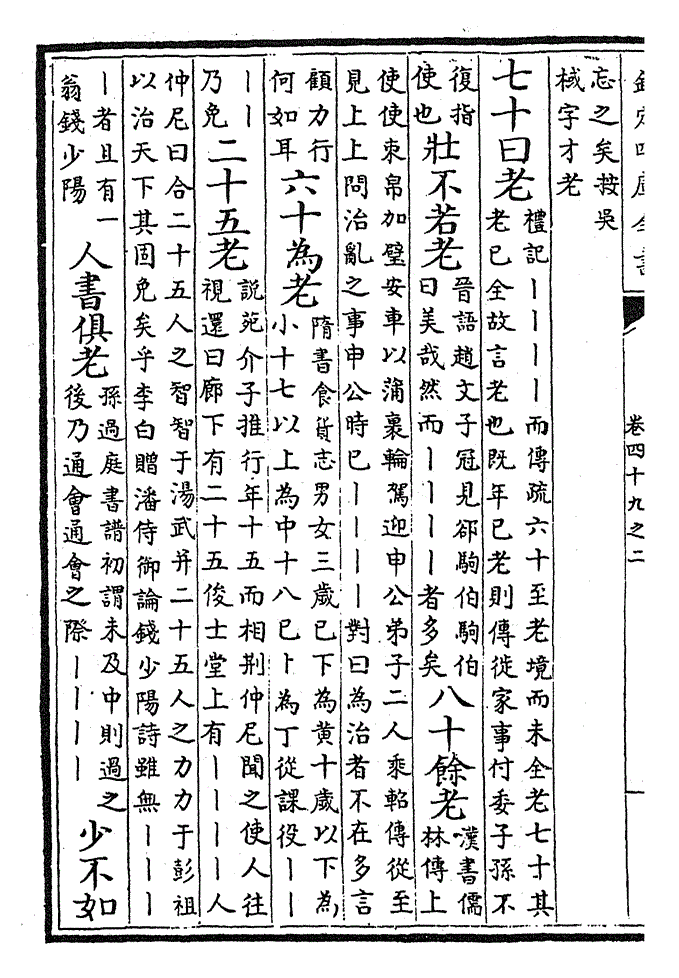 欽定四庫全書
卷四十九之二
忘之矣按吳
棫字才老
七十曰老
禮記丨丨丨丨而傳疏六十至老境而未全老七十其
老已全故言老也既年已老則傳徙家事付委子孫不
復指
使也
壯不若老
晉語趙文子冠見郤駒伯駒伯
曰美哉然而丨丨丨丨者多矣
八十餘老
漢書儒
林傳上
使使束帛加璧安車以蒲裹輪駕迎申公弟子二人乘軺傳從至
見上上問治亂之事申公時已丨丨丨丨對曰為治者不在多言
顧力行
何如耳
六十為老
隋書食貨志男女三歲已下為黄十歲以下為
小十七以上為中十八已卜為丁從課役丨丨
丨丨
乃免
二十五老
說苑介子推行年十五而相荆仲尼聞之使人往
視還曰廊下有二十五俊士堂上有丨丨丨丨人
仲尼曰合二十五人之智智于湯武并二十五人之力力于彭祖
以治天下其固免矣乎李白贈潘侍御論錢少陽詩雖無丨丨丨
丨者且有一
翁錢少陽
人書俱老
孫過庭書譜初謂未及中則過之
後乃通會通會之際丨丨丨丨
少不如